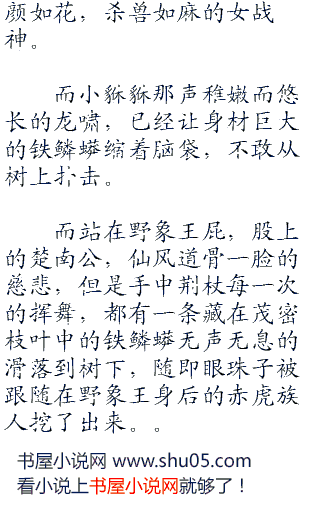 颜如花，杀兽如麻的女战
神。
而小貅貅那声稚嫩而悠
长的龙啸，已经让身材巨大
的铁鳞蟒缩着脑袋，不敢从
树上扑击。
而站在野象王屁，股上
的楚南公，仙风道骨一脸的
慈悲，但是手中荆杖每一次
的挥舞，都有一条藏在茂密
枝叶中的铁鳞蟒无声无息的
滑落到树下，随即眼珠子被
跟随在野象王身后的赤虎族
人挖了出来。。
书屋小说网 www.shu05.com
看小说上书屋小说网就够了！